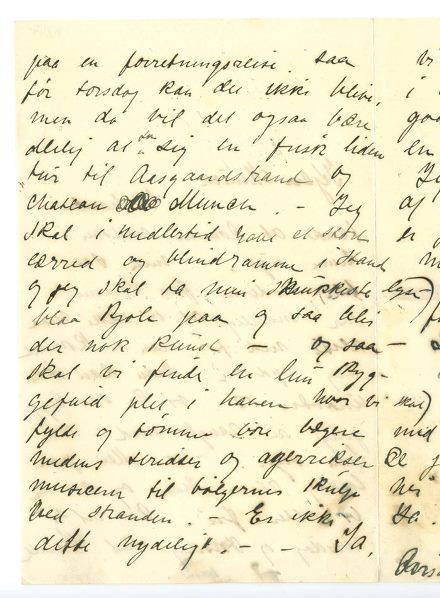 paa en forretningsreise. saa
før torsdag kan det ikke blive,
men da vil det ogsaa være
deilig at ta sig en frisk liden
tur til Aasgaardstrand og
chateau Munch. – Jeg
skal imidlertid have et stort
lærred og blindramme i stand
og jeg skal ta min smukkeste lyse-
blaa Kjole paa og saa blir
der nok kunst – og saa –
skal vi finde en lun skyg-
gefuld plet i haven hvor vi
fylde og tømme vore bægere
medens siridser og agerrikser
musicere til bølgernes skulp
ved stranden. – Er ikke
dette nydeligt. – – Ja,